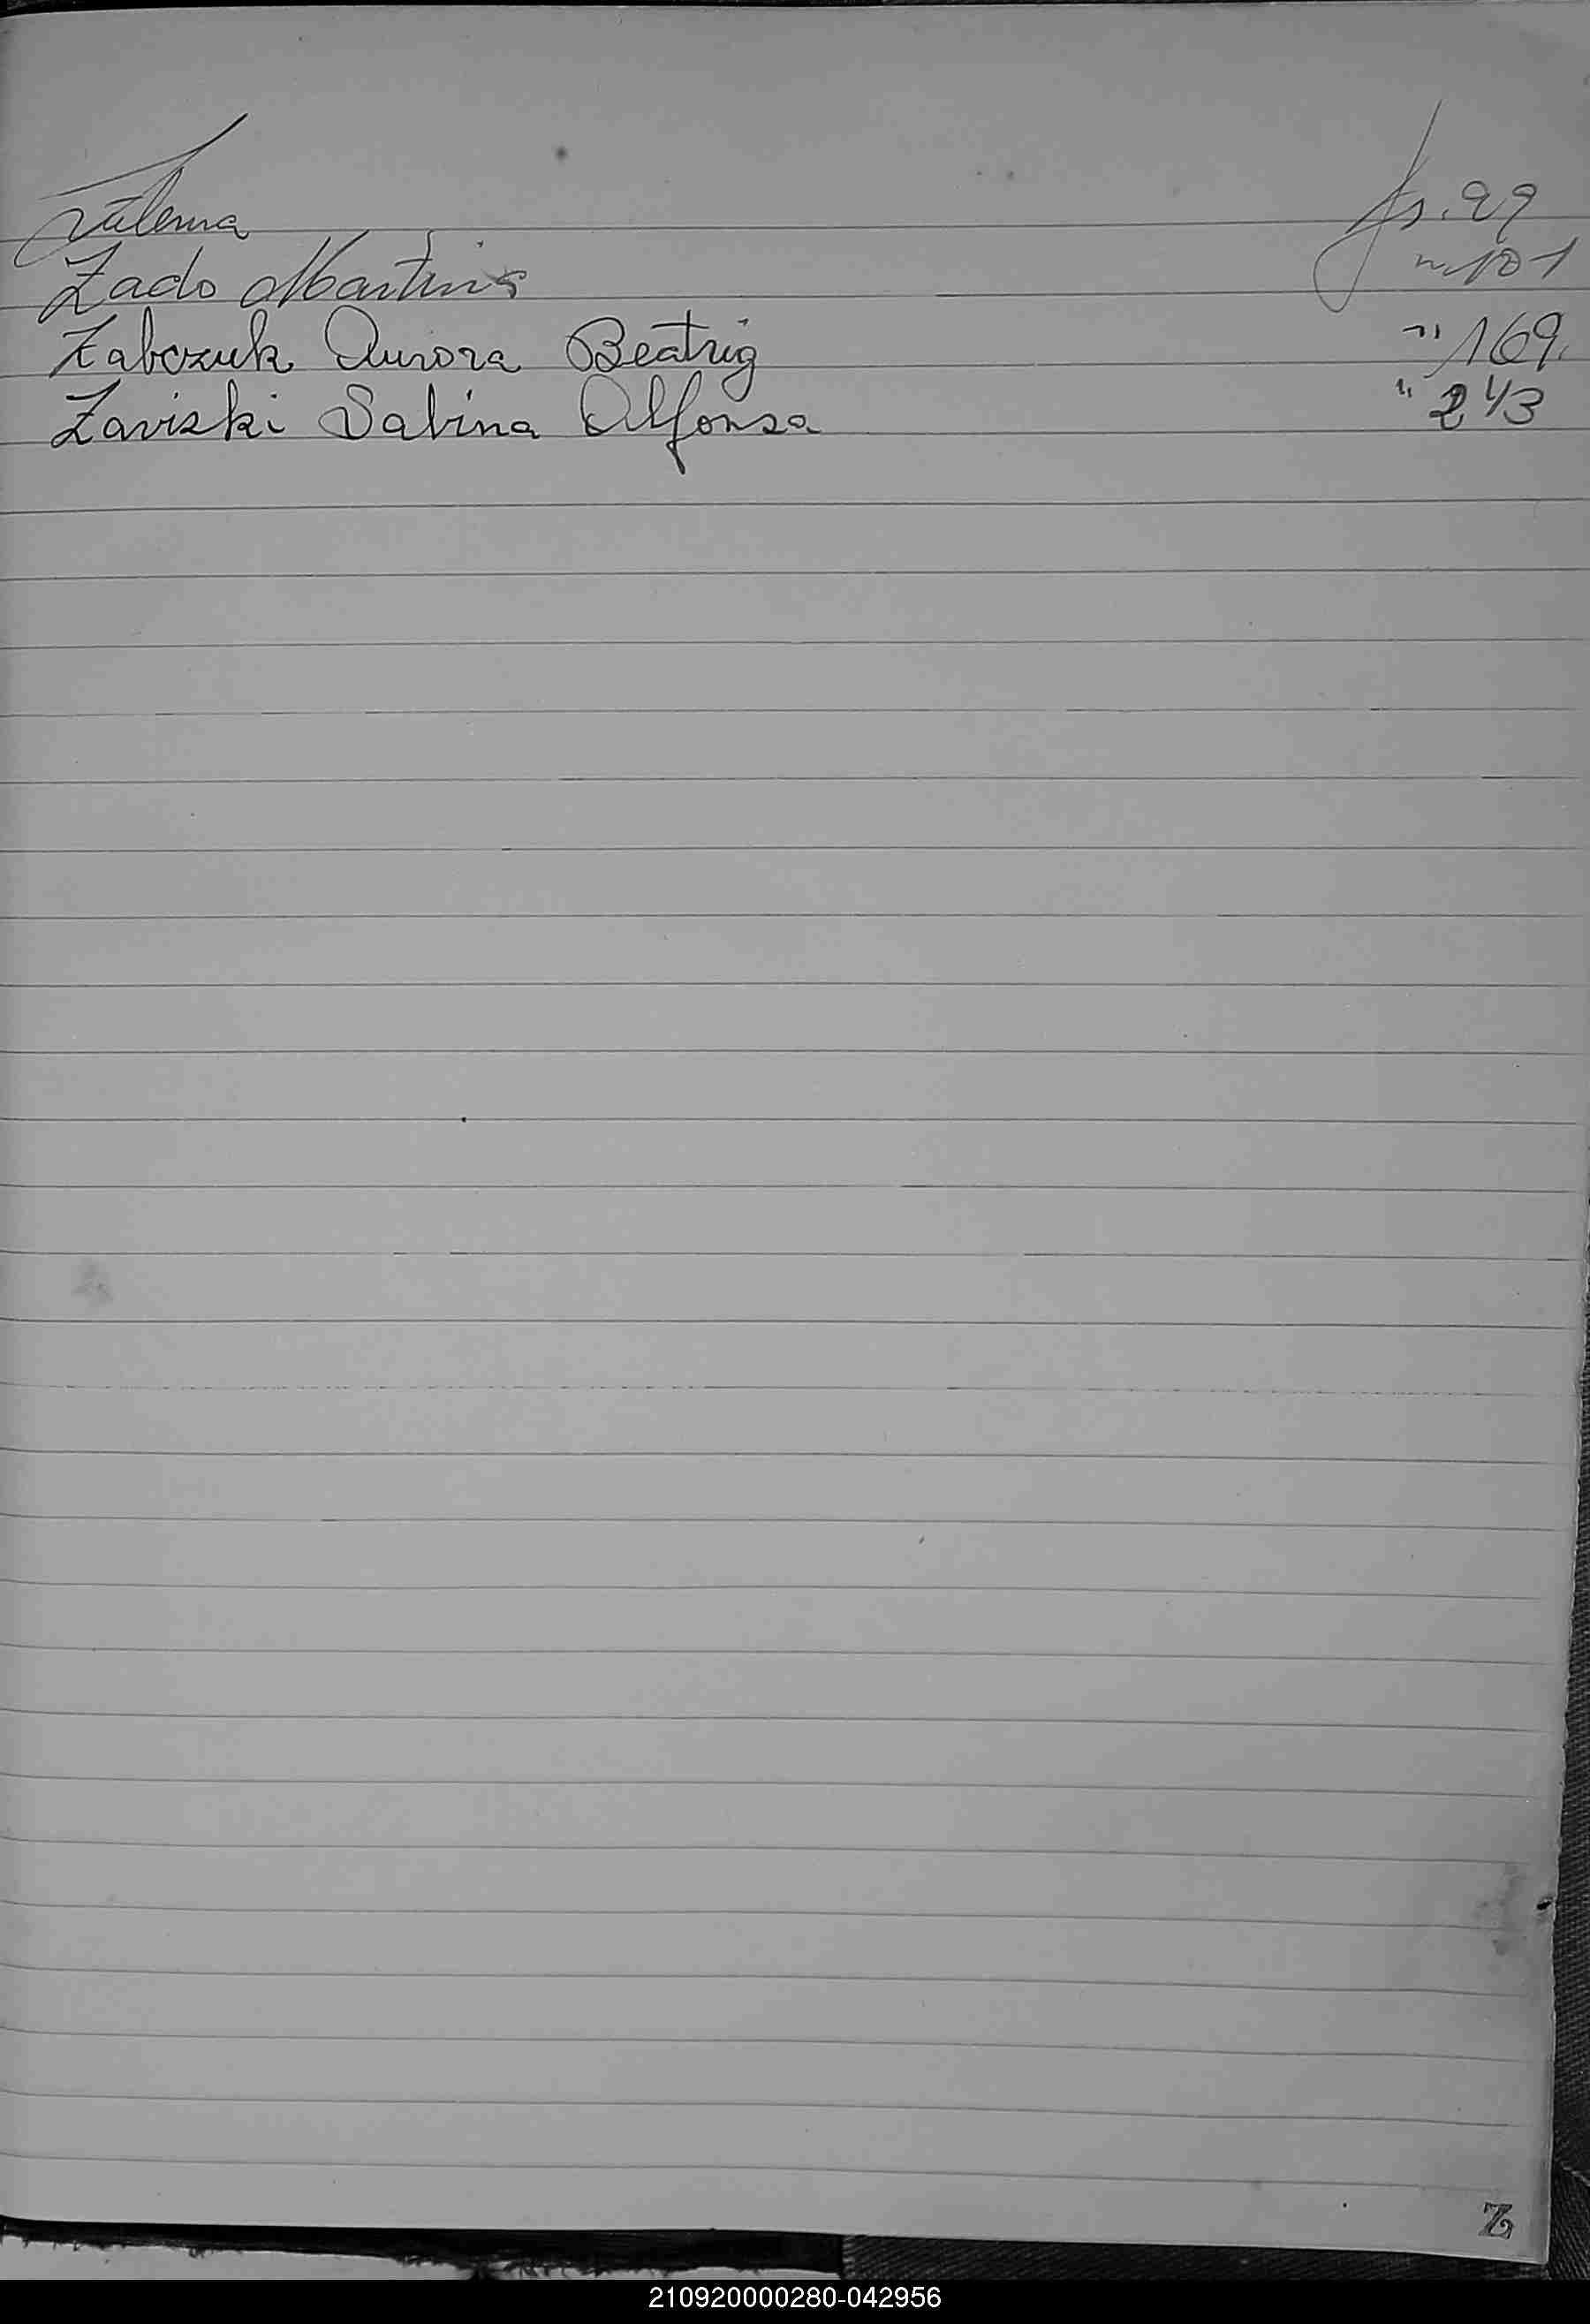 Zulema fs. 99
Zado Martins " 101
Zabczuk Aurora Beatriz " 169.
Zaviski Sabina Alfonsa " 243
Z
210920000280-042956